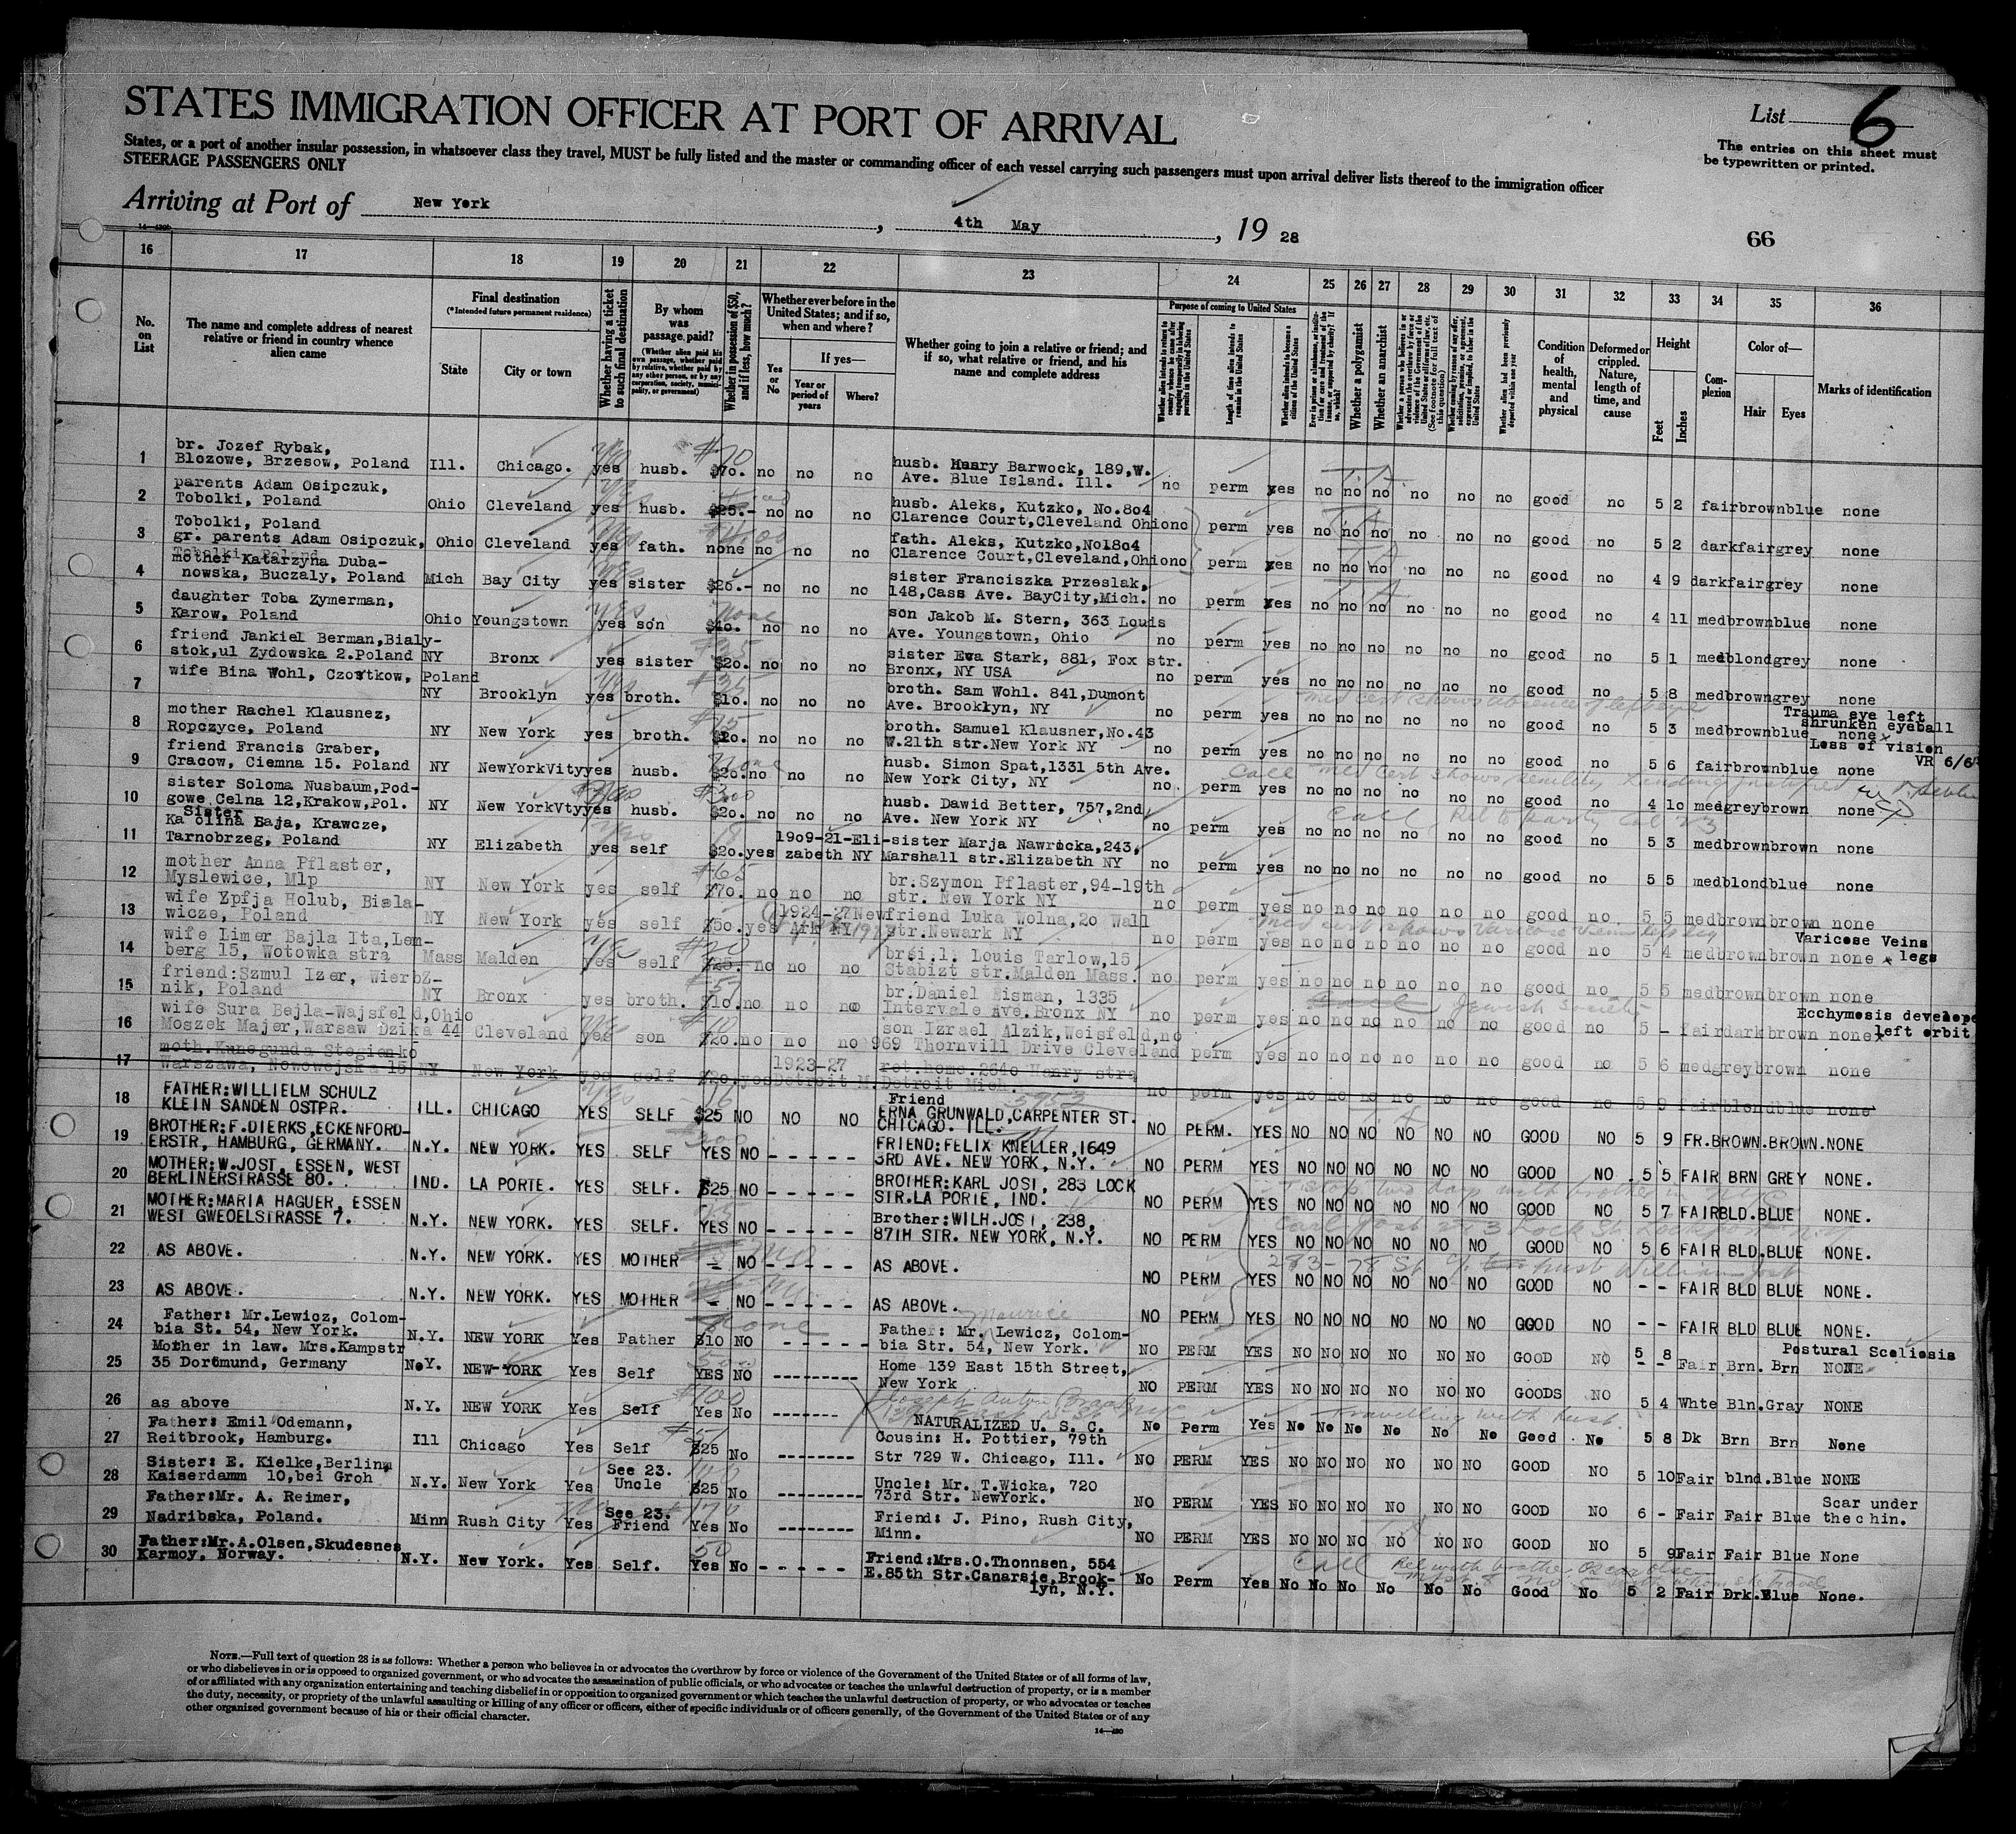 STATES IMMIGRATION OFFICER AT PORT OF ARRIVAL
List 6
States, or a port of another insular possession, in whatsoever class they travel, MUST be fully listed and the master or commanding officer of each vessel carrying such passengers must upon arrival deliver lists thereof to the immigration officer
STEERAGE PASSENGERS ONLY
The entries on this sheet must
be typewritten or printed.
Arriving at Port of New York, 4th May, 19 28
66
16 17 18 19 20 21 22 23 24 25 26 27 28 29 30 31 32 33 34 35 36
No. on List
The name and complete address of nearest relative or friend in country whence alien came
Final destination
(*Intended future permanent residence)
State
City or town
Whether having a ticket to such final destination
By whom was passage paid?
(Whether alien paid his own passage, whether paid by relative, whether paid by any other person, or by any corporation, society, municipality, or government)
Whether in possession of $50, and if less, how much?
Whether ever before in the United States; and if so, when and where?
Yes or No
If yes—
Year or period of years
Where?
Whether going to join a relative or friend; and if so, what relative or friend, and his name and complete address
Purpose of coming to United States
Length of time alien intends to remain in the United States
Whether alien intends to become a citizen of the United States
Whether a polygamist
Whether an anarchist
Condition of health, mental and physical
Deformed or crippled. Nature, length of time, and cause
Height
Feet
Inches
Complexion
Color of—
Hair
Eyes
Marks of identification
1 br. Jozef Rybak,
Blozowe, Brzesow, Poland Ill. Chicago. yes husb. $70. no no no husb. Henry Barwock, 189, W.
Ave. Blue Island. Ill. no perm yes no no no no no no good no 5 2 fair brown blue none
2 parents Adam Osipczuk,
Tobolki, Poland Ohio Cleveland yes husb. $25.- no no no husb. Aleks, Kutzko, No.804
Clarence Court,Cleveland Ohio no perm yes no no no no no no good no 5 2 dark fair grey none
3 Tobolki, Poland
gr. parents Adam Osipczuk, Ohio Cleveland yes fath. none no no no fath. Aleks, Kutzko,No1804
Clarence Court,Cleveland,Ohio no perm yes no no no no no no good no 4 9 dark fair grey none
4 mother Katarzyna Duba-
nowska, Buczaly, Poland Mich Bay City yes sister $25.- no no no sister Franciszka Przeslak,
148,Cass Ave. BayCity,Mich. no perm yes no no no no no no good no 4 11 med brown blue none
5 daughter Toba Zymerman,
Karow, Poland Ohio Youngstown yes son $10. no no no son Jakob M. Stern, 363 Louis
Ave. Youngstown, Ohio no perm yes no no no no no no good no 5 1 med blond grey none
6 friend Jankiel Berman,Bialy-
stok,ul Zydowska 2.Poland NY Bronx yes sister $20. no no no sister Eva Stark, 881, Fox str.
Bronx, NY USA no perm yes no no no no no no good no 5 8 med brown grey none
7 wife Bina Wohl, Czortkow, Poland
NY Brooklyn yes broth. $10. no no no broth. Sam Wohl. 841,Dumont
Ave. Brooklyn, NY no perm yes no no no no no no good no 5 3 med brown blue none
Trauma eye left
shrunken eyeball
Loss of vision
VR 6/6
8 mother Rachel Klausnez,
Ropczyce, Poland NY New York yes broth. $20. no no no broth. Samuel Klausner,No.43
W.21th str.New York NY no perm yes no no no no no no good no 5 6 fair brown blue none
9 friend Francis Graber,
Cracow, Ciemna 15. Poland NY NewYorkVity yes husb. $20. no no no husb. Simon Spat,1331 5th Ave.
New York City, NY no perm yes no no no no no no good no 4 10 med grey brown none
10 sister Soloma Nusbaum,Pod-
gowe Celna 12,Krakow,Pol. NY New YorkVty yes husb. $20. no no no husb. Dawid Better, 757,2nd
Ave. New York NY no perm yes no no no no no no good no 5 3 med brown brown none
11 Sister
Ka olina Baja, Krawcze,
Tarnobrzeg, Poland NY Elizabeth yes self $20. yes 1909-21-Eli-
zabeth NY sister Marja Nawrocka,243,
Marshall str.Elizabeth NY no perm yes no no no no no no good no 5 5 med blond blue none
12 mother Anna Pflaster,
Myslewice, Mlp NY New York yes self $70. no no no br.Szymon Pflaster,94-19th
str. New York NY no perm yes no no no no no no good no. 5 5 med brown brown none
13 wife Zpfja Holub, Biala-
wicze, Poland NY New York yes self $50. yes 1924-27 New
Ark NY friend Luka Wolna,20 Wall
str.Newark NY no perm yes no no no no no no good no 5 4 med brown brown none
Varicose Veins
legs
14 wife Limer Bajla Ita,Lem-
berg 15, Wotowka stra Mass Malden yes self $25. no no no Louis Tarlow,15
Stabizt str.Malden Mass. no perm yes no no no no no no good no 5 5 med brown brown none
15 friend:Szmul Izer, WierbZ-
nik, Poland NY Bronx yes broth. $10. no no no br.Daniel Eisman, 1335
Intervale Ave.Bronx NY no perm yes no no no no no no good no 5 - fair dark brown none
Ecchymosis develope
left orbit
16 wife Sura Bejla-Wajsfeld,Ohio
Moszek Majer,Warsaw Dzika 44 Cleveland yes son $20. no no no son Izrael Alzik,Weisfeld,no
969 Thornvill Drive Cleveland perm yes no no no no no no good no 5 6 med grey brown none
17 moth.Kunegunda Stegienko
Warszawa, Nowowejska 15 NY New York yes self $20. yes 1923-27
Detroit M. ret.home.2640 Henry stra
Detroit Mich. no perm yes no no no no no no good no 5 9 fair blond blue none
18 FATHER:WILLIELM SCHULZ
KLEIN SANDEN OSTPR. ILL. CHICAGO YES SELF $25 NO NO NO Friend
ERNA GRUNWALD,CARPENTER ST.
CHICAGO. ILL. NO PERM. YES NO NO NO NO NO NO GOOD NO 5 9 FR.BROWN.BROWN.NONE
19 BROTHER:F.DIERKS,ECKENFORD-
ERSTR, HAMBURG, GERMANY. N.Y. NEW YORK. YES SELF YES NO - - - - - FRIEND:FELIX KNELLER,1649
3RD AVE. NEW YORK, N.Y. NO PERM YES NO NO NO NO NO NO GOOD NO 5 5 FAIR BRN GREY NONE.
20 MOTHER:W.JOST, ESSEN, WEST
BERLINERSTRASSE 80. IND. LA PORTE. YES SELF. $25 NO - - - - - BROTHER:KARL JOSI, 283 LOCK
STR.LA PORIE, IND. NO PERM YES NO NO NO NO NO NO GOOD NO 5 7 FAIR BLD.BLUE NONE.
21 MOTHER:MARIA HAGUER, ESSEN
WEST GWEOELSTRASSE 7. N.Y. NEW YORK. YES SELF. YES NO - - - - - Brother:WILH.JOSI, 238,
87IH STR. NEW YORK, N.Y. NO PERM YES NO NO NO NO NO NO GOOD NO 5 6 FAIR BLD.BLUE NONE.
22 AS ABOVE. N.Y. NEW YORK. YES MOTHER - NO - - - - - AS ABOVE. NO PERM YES NO NO NO NO NO NO GOOD NO - - FAIR BLD BLUE NONE.
23 AS ABOVE. N.Y. NEW YORK. YES MOTHER - NO - - - - - AS ABOVE. NO PERM YES NO NO NO NO NO NO GOOD NO - - FAIR BLD BLUE NONE.
24 Father: Mr.Lewicz, Colom-
bia St. 54, New York. N.Y. NEW YORK Yes Father $10 NO - - - - - Father: Mr. Maurice Lewicz, Colom-
bia Str. 54, New York. NO PERM YES NO NO NO NO NO NO GOOD NO 5 8 Fair Brn. Brn NONE
Postural Scoliosis
25 Mother in law. Mrs.Kampstr
35 Dortmund, Germany N.Y. NEW-YORK Yes Self YES NO --------- Home 139 East 15th Street,
New York NO PERM YES NO NO NO NO NO NO GOODS NO 5 4 Whte Bln.Gray NONE
26 as above N.Y. NEW YORK Yes Self Yes No ------- NATURALIZED U. S. C. No Perm Yes No No No No No No Good No 5 8 Dk Brn Brn None
27 Father: Emil Odemann,
Reitbrook, Hamburg. Ill Chicago Yes Self $25 No --------- Cousin: H. Pottier, 79th
Str 729 W. Chicago, Ill. NO PERM YES NO NO NO NO NO NO GOOD NO 5 10 Fair blnd.Blue NONE
28 Sister: E. Kielke,Berlin
Kaiserdamm 10,bei Groh N.Y. New York Yes See 23.
Uncle $25 No --------- Uncle: Mr. T.Wicka, 720
73rd Str. NewYork. NO PERM YES NO NO NO NO NO NO GOOD NO 6 - Fair Fair Blue Scar under
thec hin.
29 Father:Mr. A. Reimer,
Nadribska, Poland. Minn Rush City Yes See 23.
Friend Yes No -------- Friend: J. Pino, Rush City,
Minn. NO PERM YES NO NO NO NO NO NO GOOD NO 5 9 Fair Fair Blue None
30 Father:Mr.A.Olsen,Skudesnes
Karmoy, Norway. N.Y. New York. Yes Self. Yes No - - - - - Friend:Mrs.O.Thonnsen, 554
E.85th Str.Canarsie,Brook-
lyn, N.Y. No Perm Yes No No No No No No Good No 5 2 Fair Drk.Blue None.
NOTE.—Full text of question 28 is as follows: Whether a person who believes in or advocates the overthrow by force or violence of the Government of the United States or of all forms of law,
or who disbelieves in or is opposed to organized government, or who advocates the assassination of public officials, or who advocates or teaches the unlawful destruction of property, or is a member
of or affiliated with any organization entertaining and teaching disbelief in or opposition to organized government or which teaches the unlawful destruction of property, or who advocates or teaches
the duty, necessity, or propriety of the unlawful assaulting or killing of any officer or officers, either of specific individuals or of officers generally, of the Government of the United States or of any
other organized government because of his or their official character.
14—430